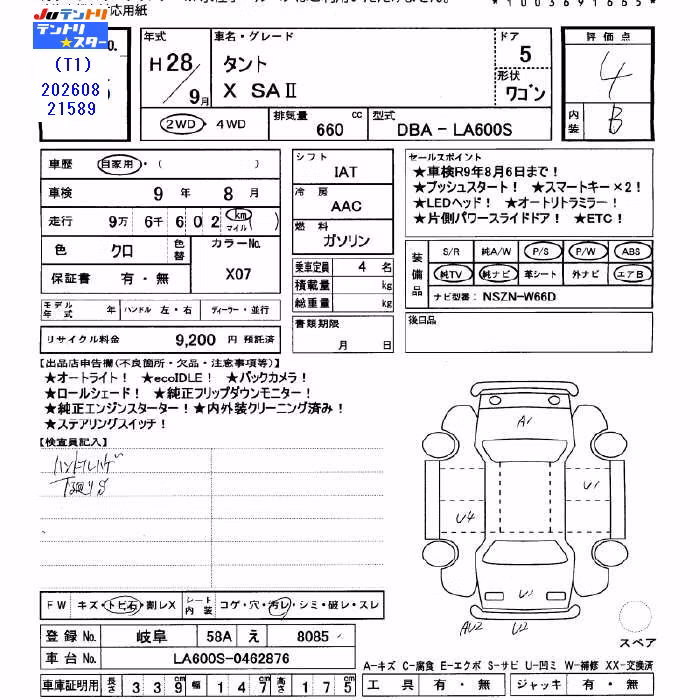 応用紙
*1003691665*
Juテントリ
テントリ
★スター
(T1)
202608
21589
No.
年式
H28/9月
車名・グレード
タント
X SAⅡ
ドア
5
形状
ワゴン
評価点
4
内装
B
2WD・4WD
排気量
660 cc
型式
DBA - LA600S
車歴 自家用・( )
車検 9 年 8 月
走行 9万 6千 6 0 2 km マイル
色 クロ 色替 カラーNo. X07
保証書 有・無
シフト
IAT
冷房
AAC
燃料
ガソリン
乗車定員 4 名
積載量 kg
総重量 kg
書類期限
月 日
セールスポイント
★車検R9年8月6日まで!
★プッシュスタート! ★スマートキー×2!
★LEDヘッド! ★オートリトラミラー!
★片側パワースライドドア! ★ETC!
装備品
S/R 純A/W P/S P/W ABS
純TV 純ナビ 革シート 外ナビ エアB
ナビ型番: NSZN-W66D
後日品
モデル年式 年 ハンドル 左・右 ディーラー・並行
リサイクル料金 9,200 円 預託済
【出品店申告欄(不良箇所・欠品・注意事項等)】
★オートライト! ★ecoIDLE! ★バックカメラ!
★ロールシェード! ★純正フリップダウンモニター!
★純正エンジンスターター! ★内外装クリーニング済み!
★ステアリングスイッチ!
【検査員記入】
ハンドルハゲ
下廻りS
A1
U1
U4
AU2
U2
FW キズ・トビ石・割レX シート内装 コゲ・穴・汚レ・シミ・破レ・スレ
登録No. 岐阜 58A え 8085
車台No. LA600S-0462876
車庫証明用 長さ 3 3 9 cm 幅 1 4 7 cm 高さ 1 7 5 cm
スペア
A-キズ C-腐食 E-エクボ S-サビ U-凹ミ W-補修 XX-交換済
工具 有・無 ジャッキ 有・無